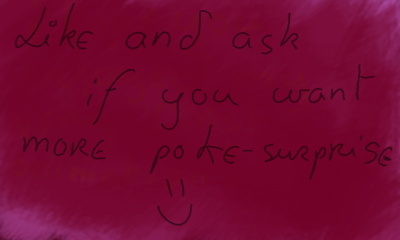 Like and ask
if you want
more poke-surprise